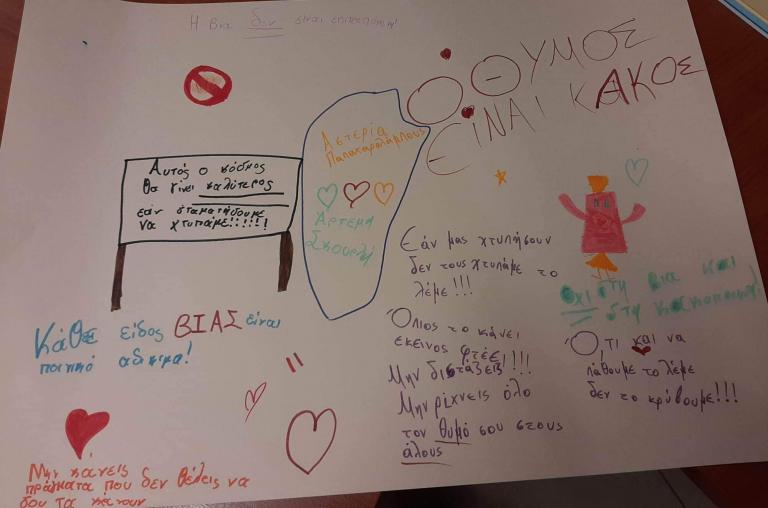 Η βια δεν είναι επιτρεπτή!
Ο ΘΥΜΟΣ
ΕΙΝΑΙ ΚΑΚΟΣ
Αστερία
Παπαχαραλάμπους
Άρτεμη
Σκουρλή
Αυτός ο κόσμος
θα γίνει καλύτερος
εάν σταματήσουμε
να χτυπάμε!!!!!!
Εάν μας χτυπήσουν
δεν τους χτυπάμε το
λέμε!!!
Όχι στη βια και
στη κακοποίηση!
Κάθε είδος ΒΙΑΣ είναι
ποινικό αδίκημα!
Όπιος το κάνει
εκείνος φτέει!!!!
Μην διστάζεις
Μην ρίχνεις όλο
τον θυμό σου στους
άλους
Ό,τι και να
πάθουμε το λέμε
δεν το κρύβουμε!!!
Μην κάνεις
πράγματα που δεν θέλεις να
σου τα κάνουν